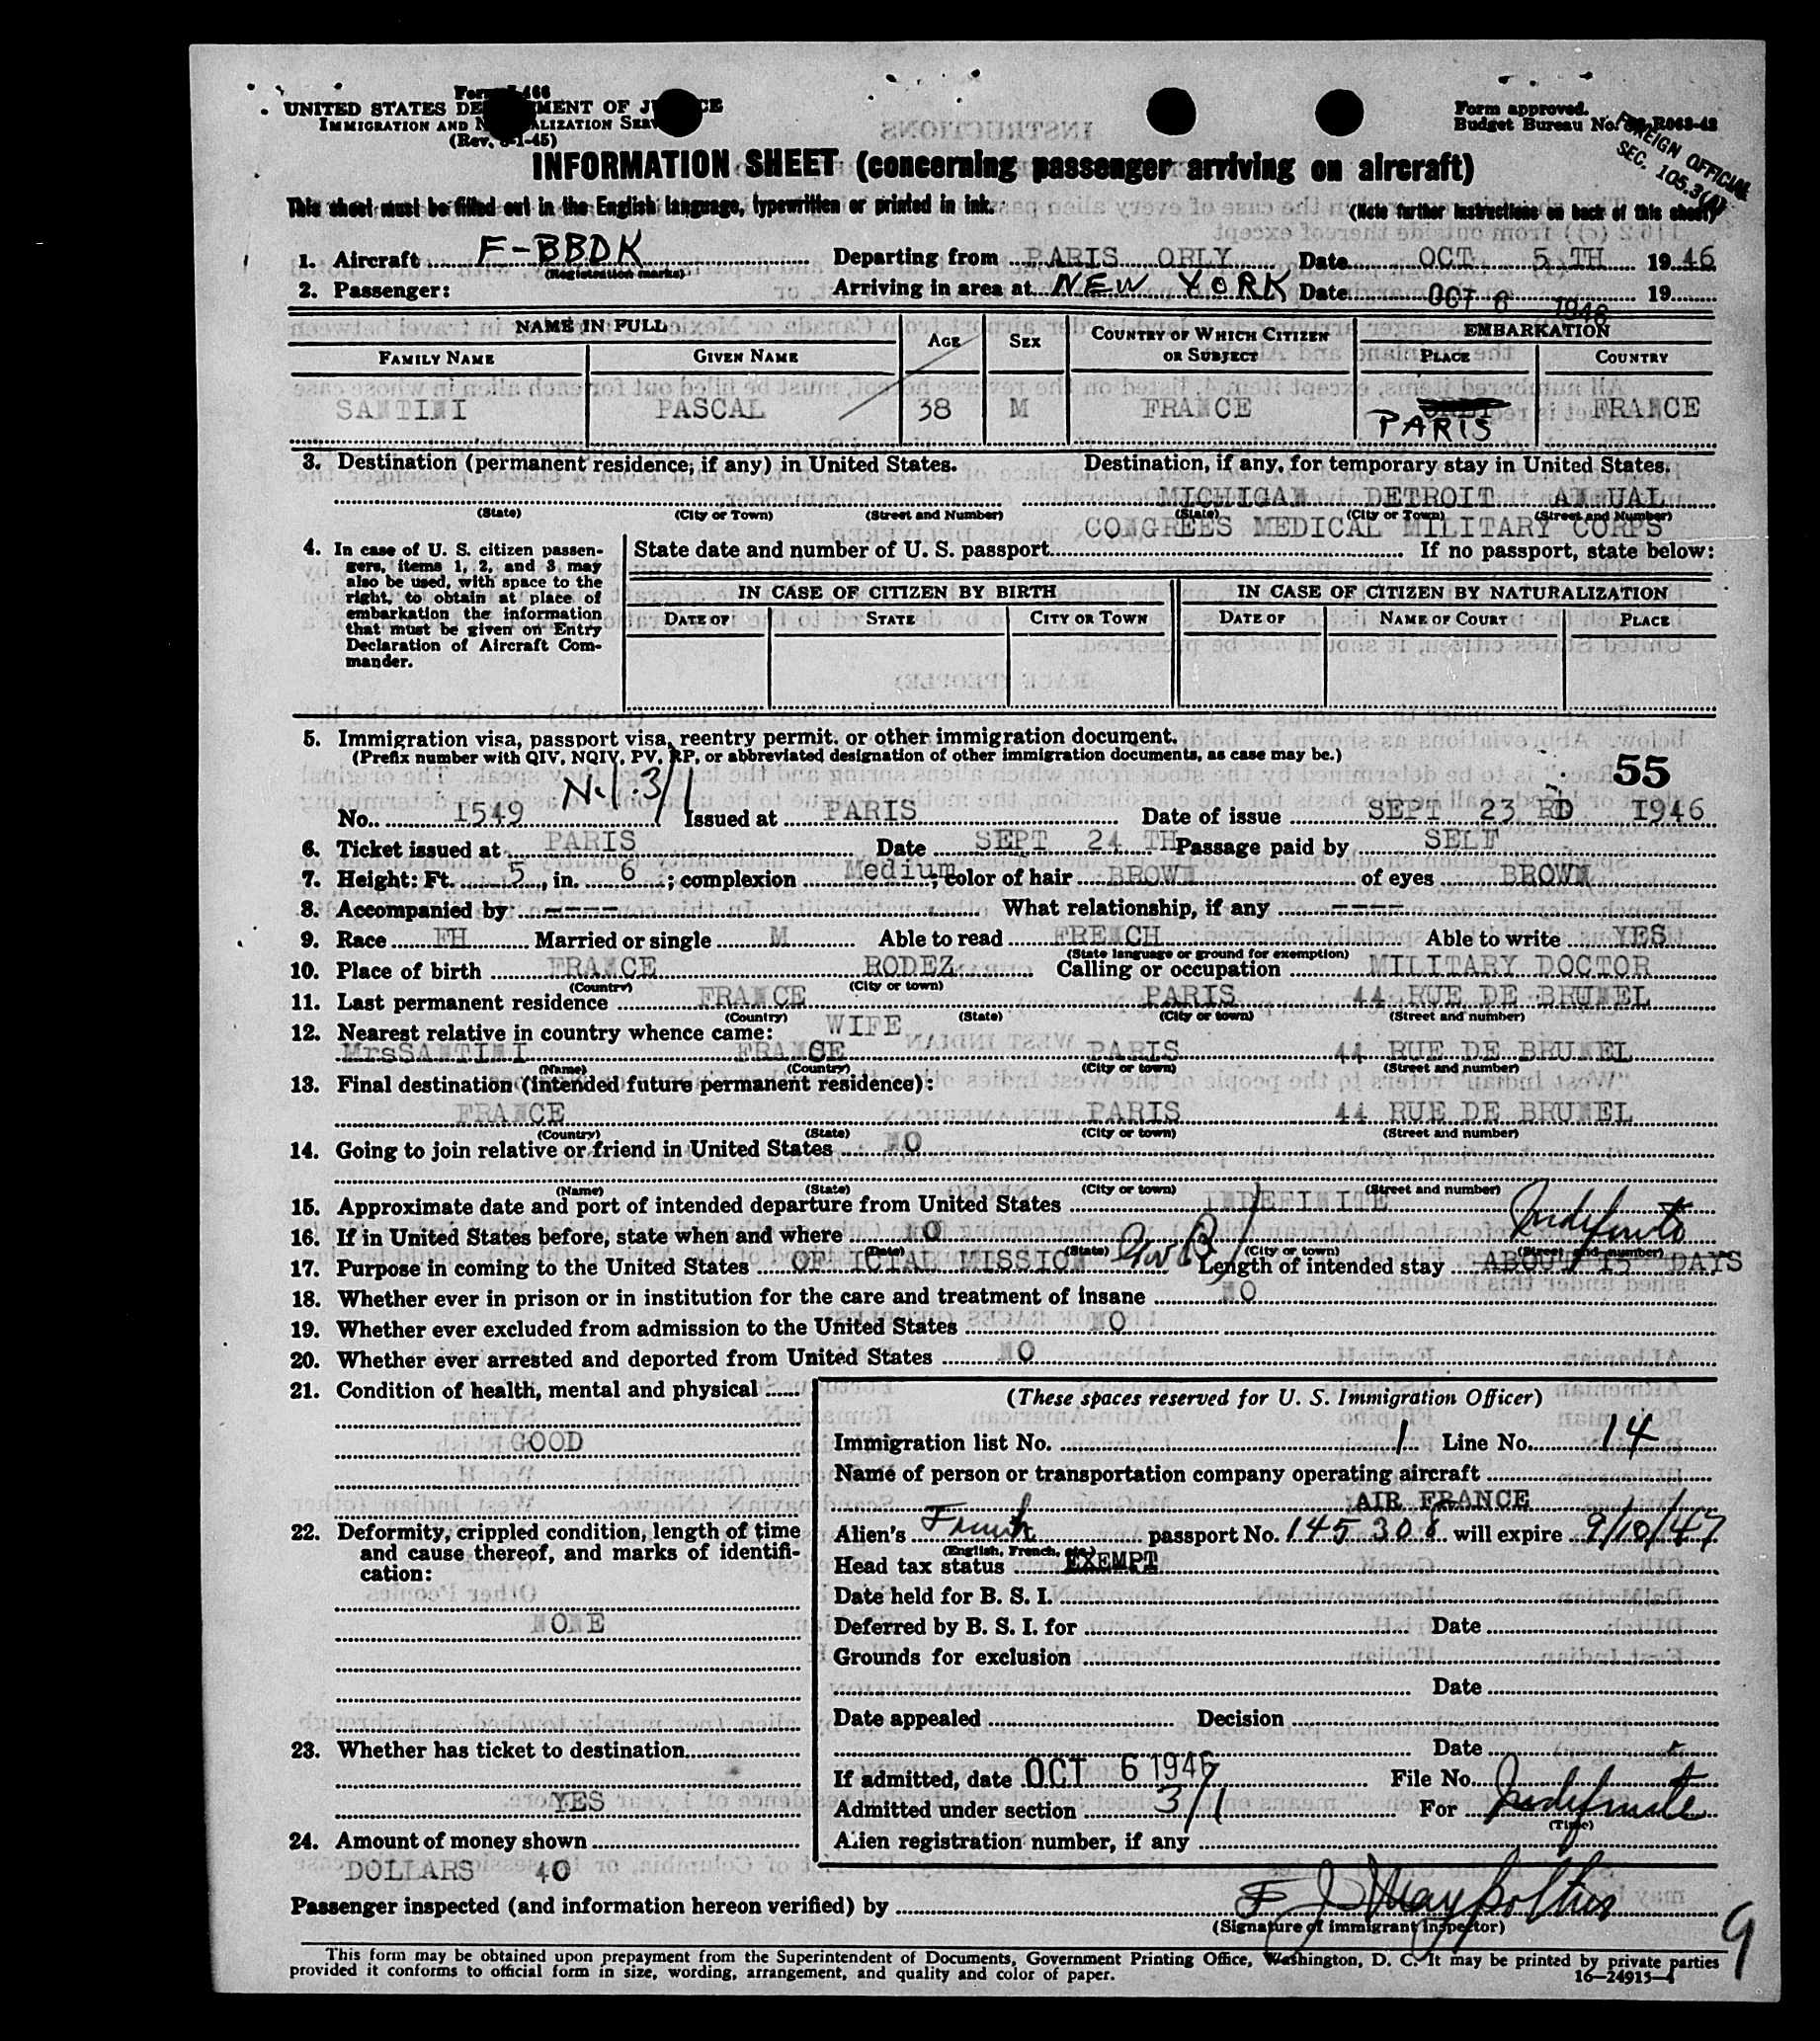 Form I-466
UNITED STATES DEPARTMENT OF JUSTICE
IMMIGRATION AND NATURALIZATION SERVICE
(Rev. 6-1-45)
Form approved.
Budget Bureau No. 43-R063-42
FOREIGN OFFICIAL
SEC. 105.3(A)
INFORMATION SHEET (concerning passenger arriving on aircraft)
This sheet must be filled out in the English language, typewritten or printed in ink. (Note further instructions on back of this sheet)
1. Aircraft F-BBDK Departing from PARIS ORLY Date OCT 5 TH 1946
(Registration marks)
2. Passenger: Arriving in area at NEW YORK Date OCT 6 1946 19
NAME IN FULL AGE SEX COUNTRY OF WHICH CITIZEN OR SUBJECT EMBARKATION
FAMILY NAME GIVEN NAME PLACE COUNTRY
SANTINI PASCAL 38 M FRANCE PARIS FRANCE
3. Destination (permanent residence, if any) in United States. Destination, if any, for temporary stay in United States.
MICHIGAN DETROIT ANUAL
(State) (City or Town) (Street and Number) (State) (City or Town) (Street and Number)
CONGREES MEDICAL MILITARY CORPS
4. In case of U. S. citizen passen-
gers, items 1, 2, and 3 may
also be used, with space to the
right, to obtain at place of
embarkation the information
that must be given on Entry
Declaration of Aircraft Com-
mander.
State date and number of U. S. passport If no passport, state below:
IN CASE OF CITIZEN BY BIRTH IN CASE OF CITIZEN BY NATURALIZATION
DATE OF STATE CITY OR TOWN DATE OF NAME OF COURT PLACE
5. Immigration visa, passport visa, reentry permit, or other immigration document.
(Prefix number with QIV, NQIV, PV, RP, or abbreviated designation of other immigration documents, as case may be.)
55
3/1
No. 1549 Issued at PARIS Date of issue SEPT 23 RD 1946
6. Ticket issued at PARIS Date SEPT 24 TH Passage paid by SELF
7. Height: Ft. 5, in. 6; complexion Medium; color of hair BROWN of eyes BROWN
8. Accompanied by ---- What relationship, if any ----
9. Race FH Married or single M Able to read FRENCH Able to write YES
(State language or ground for exemption)
10. Place of birth FRANCE RODEZ Calling or occupation MILITARY DOCTOR
(Country) (City or town)
11. Last permanent residence FRANCE PARIS 44 RUE DE BRUNEL
(Country) (State) (City or town) (Street and number)
12. Nearest relative in country whence came: WIFE
MrsSANTINI FRANCE PARIS 44 RUE DE BRUNEL
(Name) (Country) (City or town) (Street and number)
13. Final destination (intended future permanent residence):
FRANCE PARIS 44 RUE DE BRUNEL
(Country) (State) (City or town) (Street and number)
14. Going to join relative or friend in United States NO
(Name) (State) (City or town) (Street and number)
15. Approximate date and port of intended departure from United States INDEFINITE
16. If in United States before, state when and where NO Indefinite
(Date) (State) (City or town) (Street and number)
17. Purpose in coming to the United States OF ICIAL MISSION Length of intended stay ABOUT 15 DAYS
18. Whether ever in prison or in institution for the care and treatment of insane NO
19. Whether ever excluded from admission to the United States NO
20. Whether ever arrested and deported from United States NO
21. Condition of health, mental and physical
GOOD
22. Deformity, crippled condition, length of time
and cause thereof, and marks of identifi-
cation:
NONE
23. Whether has ticket to destination
YES
24. Amount of money shown
DOLLARS 40
(These spaces reserved for U. S. Immigration Officer)
Immigration list No. 1 Line No. 14
Name of person or transportation company operating aircraft
AIR FRANCE
Alien's French passport No. 145308 will expire 9/10/47
(English, French, etc.)
Head tax status EXEMPT
Date held for B. S. I.
Deferred by B. S. I. for Date
Grounds for exclusion
Date
Date appealed Decision
Date
If admitted, date OCT 6 1946 File No.
Admitted under section 3/1 For Indefinite
(Time)
Alien registration number, if any
Passenger inspected (and information hereon verified) by
(Signature of immigrant inspector)
9
This form may be obtained upon prepayment from the Superintendent of Documents, Government Printing Office, Washington, D. C. It may be printed by private parties
provided it conforms to official form in size, wording, arrangement, and quality and color of paper. 16—24915-4